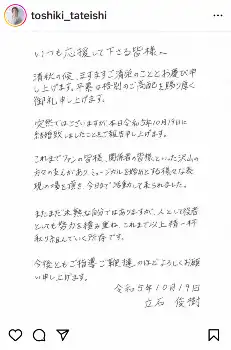 toshiki_tateishi
いつも応援して下さる皆様へ
清秋の候、ますますご清栄のこととお慶び申
し上げます。平素は格別のご高配を賜り厚く
御礼申し上げます。
突然ではございますが本日令和5年10月19日に
結婚致しましたことをご報告申し上げます。
これまでファンの皆様、関係者の皆様といった沢山の
方々の支えがあり ミュージカルを始めとする様々な表
現の場を頂き、今日まで活動して来られました。
まだまだ未熟な自分ではありますが、人として役者
としても努力を積み重ね、これまで以上精一杯
取り組んでいく所存です。
今後ともご指導ご鞭撻のほどよろしくお願
い申し上げます。
令和5年10月19日
立石 俊樹